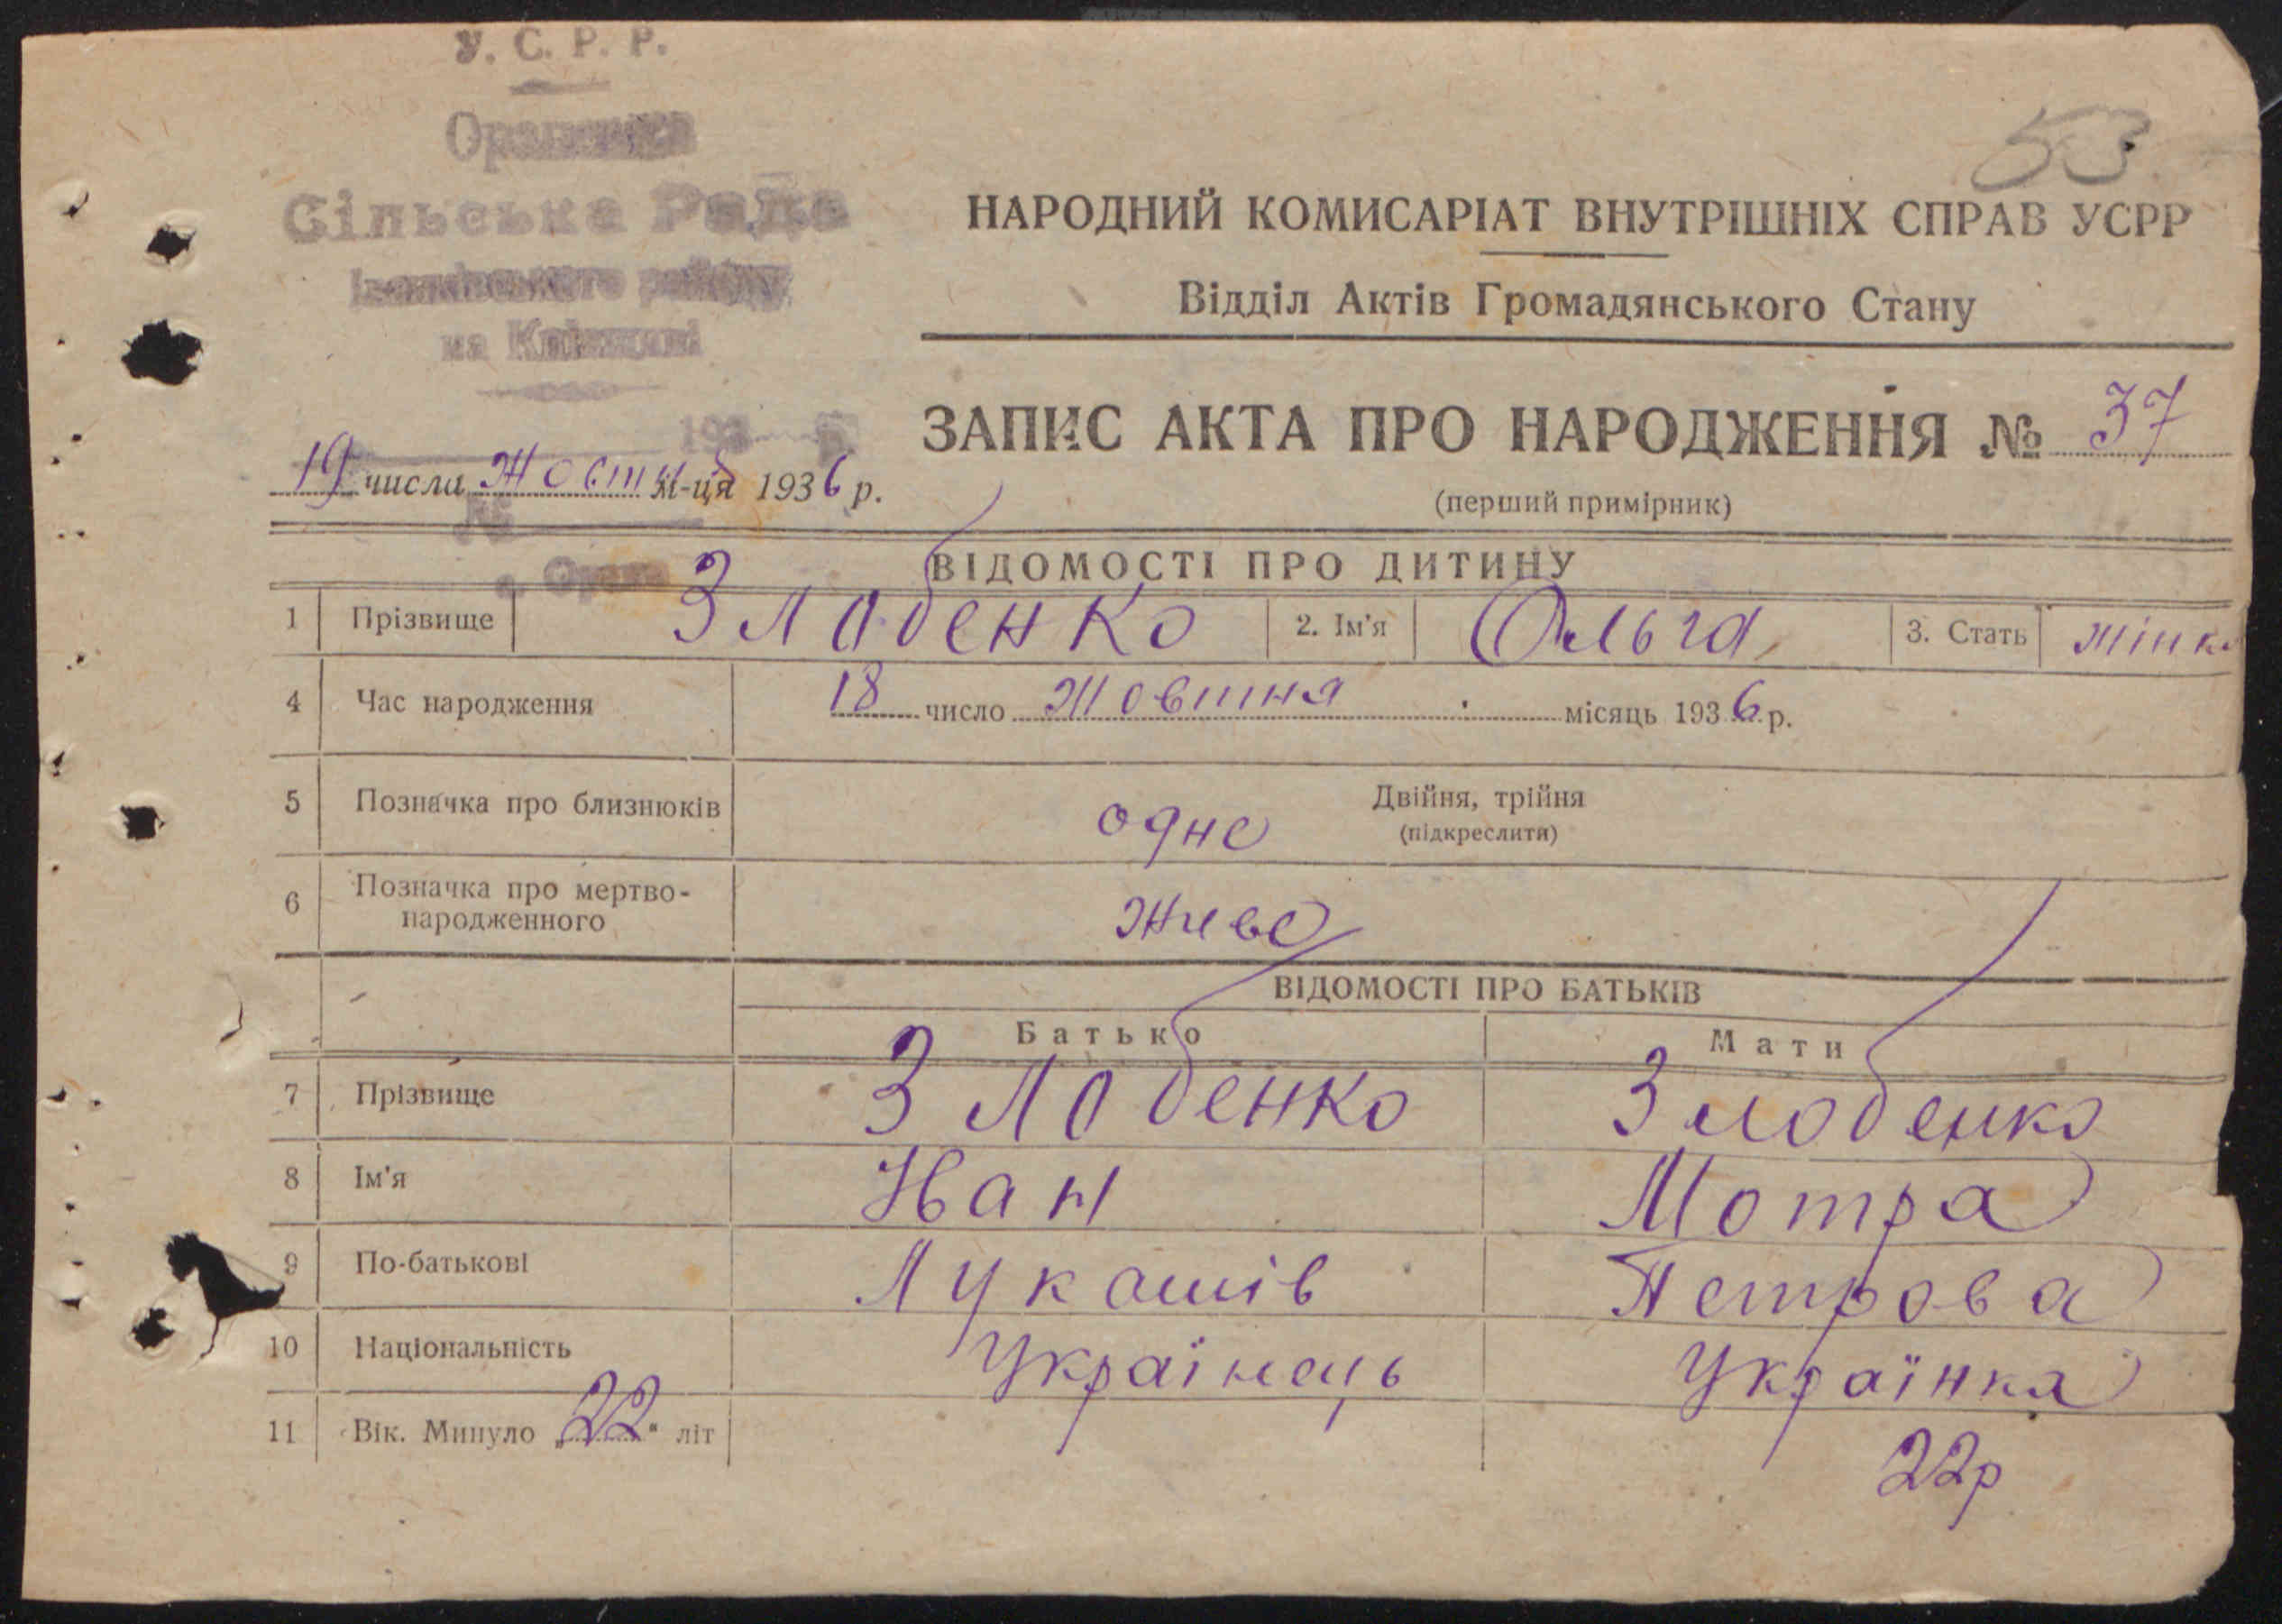 У. С. Р. Р.
Сільська Рада
району
на Київщині
53
НАРОДНИЙ КОМИСАРІАТ ВНУТРІШНІХ СПРАВ УСРР
Відділ Актів Громадянського Стану
ЗАПИС АКТА ПРО НАРОДЖЕННЯ № 37
(перший примірник)
193 р.
19 числа Жовт м-ця 1936 р.
№
ВІДОМОСТІ ПРО ДИТИНУ
1 Прізвище Злобенко 2. Ім'я Ольга 3. Стать жінка
4 Час народження 18 число Жовтня місяць 1936 р.
5 Позначка про близнюків одне Двійня, трійня
(підкреслити)
6 Позначка про мертво-
народженного живе
ВІДОМОСТІ ПРО БАТЬКІВ
Батько Мати
7 Прізвище Злобенко Злобенко
8 Ім'я Иван Мотра
9 По-батькові Лукашів Петрова
10 Національність Українець Українка
11 Вік. Минуло „22" літ 22р